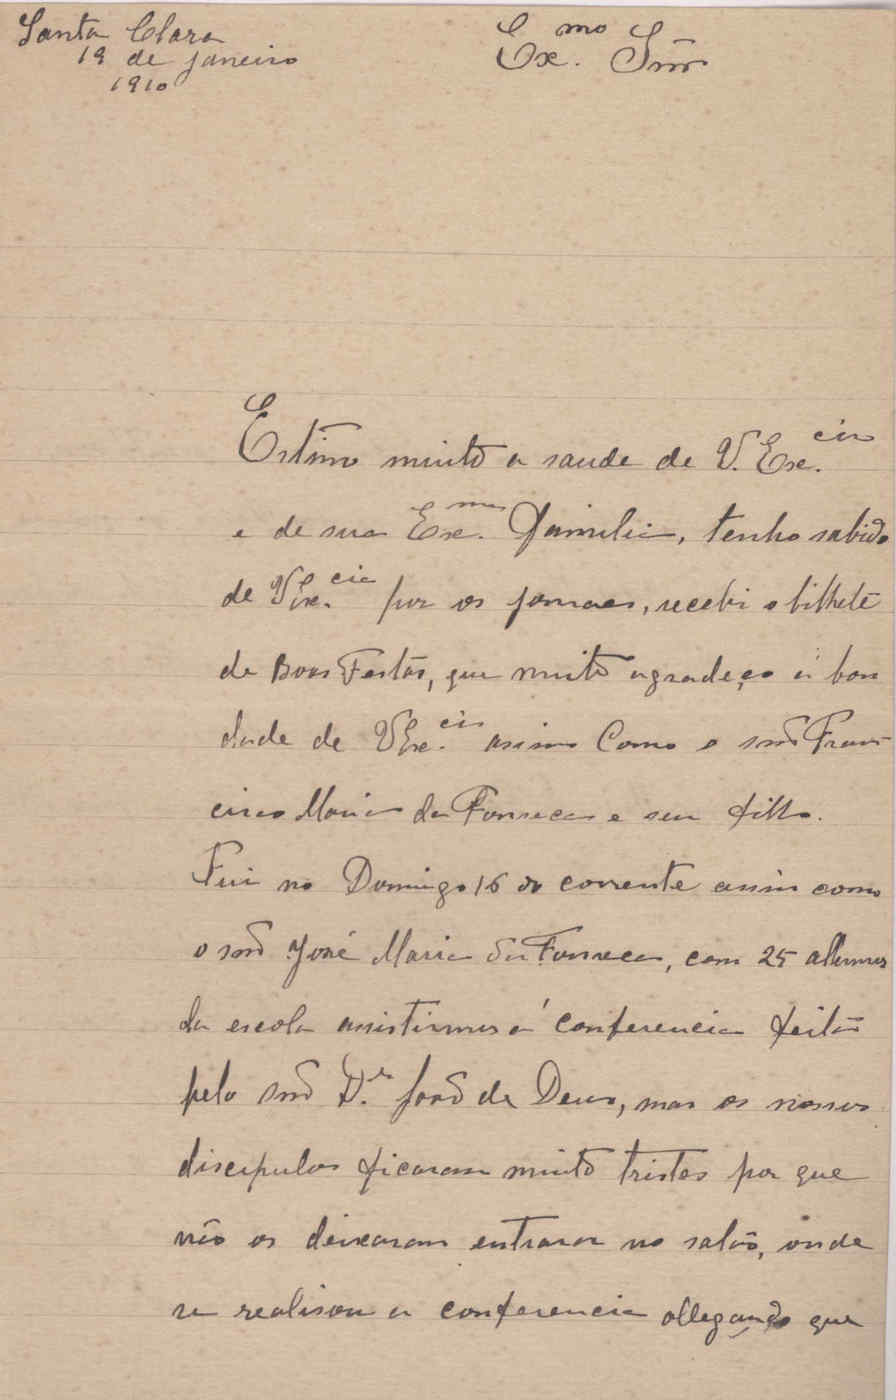 Santa Clara
19 de janeiro
1910
Ex.mo Snr
Estimo muito a saude de V. Ex.cia
e de sua Ex.ma familia, tenho sabido
de V Ex.cia por os jornaes, recebi o bilhete
de Boas Festas, que muito agradeço á bon
dade de V Ex.cia assim como o snr Fran-
cisco Maria da Fonseca e seu filho.
Fui no Domingo 16 do corrente assim como
o snr José Maria da Fonseca, com 25 allumnos
da escola assistirmos á conferencia feita
pelo snr D.r João de Deus, mas os nossos
discipulos ficaram muito tristes por que
não os deixaram entrarar no salão, onde
se realisou a conferencia allegando que